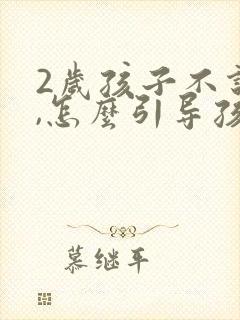 2歲孩子不
,怎麼引导孩
慕继平